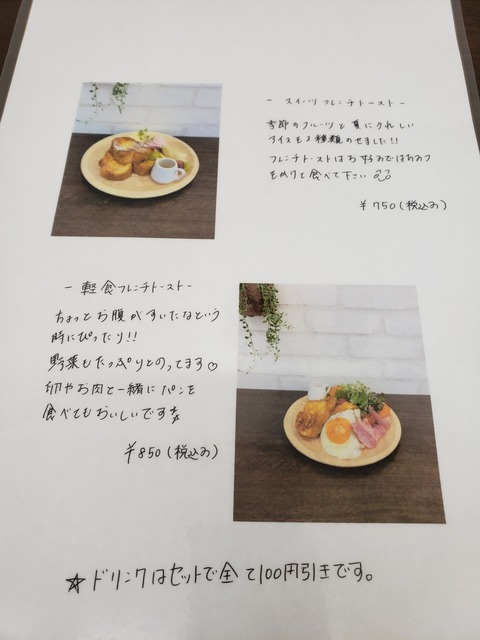 - スイーツ フレンチトースト -
季節のフルーツと夏にうれしい
アイスを2種類のせました!!
フレンチトーストはお好みではちみつ
をかけて食べて下さい
¥750(税込み)
- 軽食フレンチトースト -
ちょっとお腹がすいたなという
時にぴったり!!
野菜もたっぷりとのってます♡
卵やお肉と一緒にパンを
食べてもおいしいです
¥850(税込み)
☆ドリンクはセットで全て100円引きです。